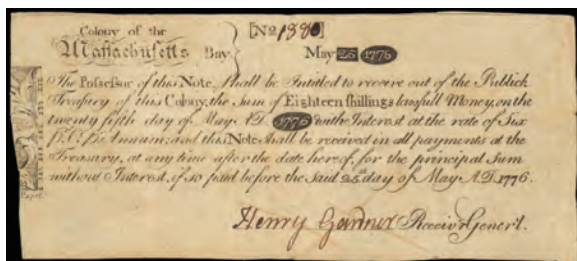 Colony of the
Massachusetts Bay.
[No 1880]
May 25 1775
The Possessor of this Note, shall be Intitled to receive out of the Publick
Treasury of this Colony, the Sum of Eighteen shillings lawfull Money, on the
twenty fifth day of May A.D. 1776 with Interest at the rate of Six
Pr. Ct. Pr. Annum; and this Note shall be received in all payments at the
Treasury, at any time after the date hereof, for the principal Sum
without Interest, if so paid before the Said 25th day of May A.D. 1776.
Henry Gardner Receivr Generl.